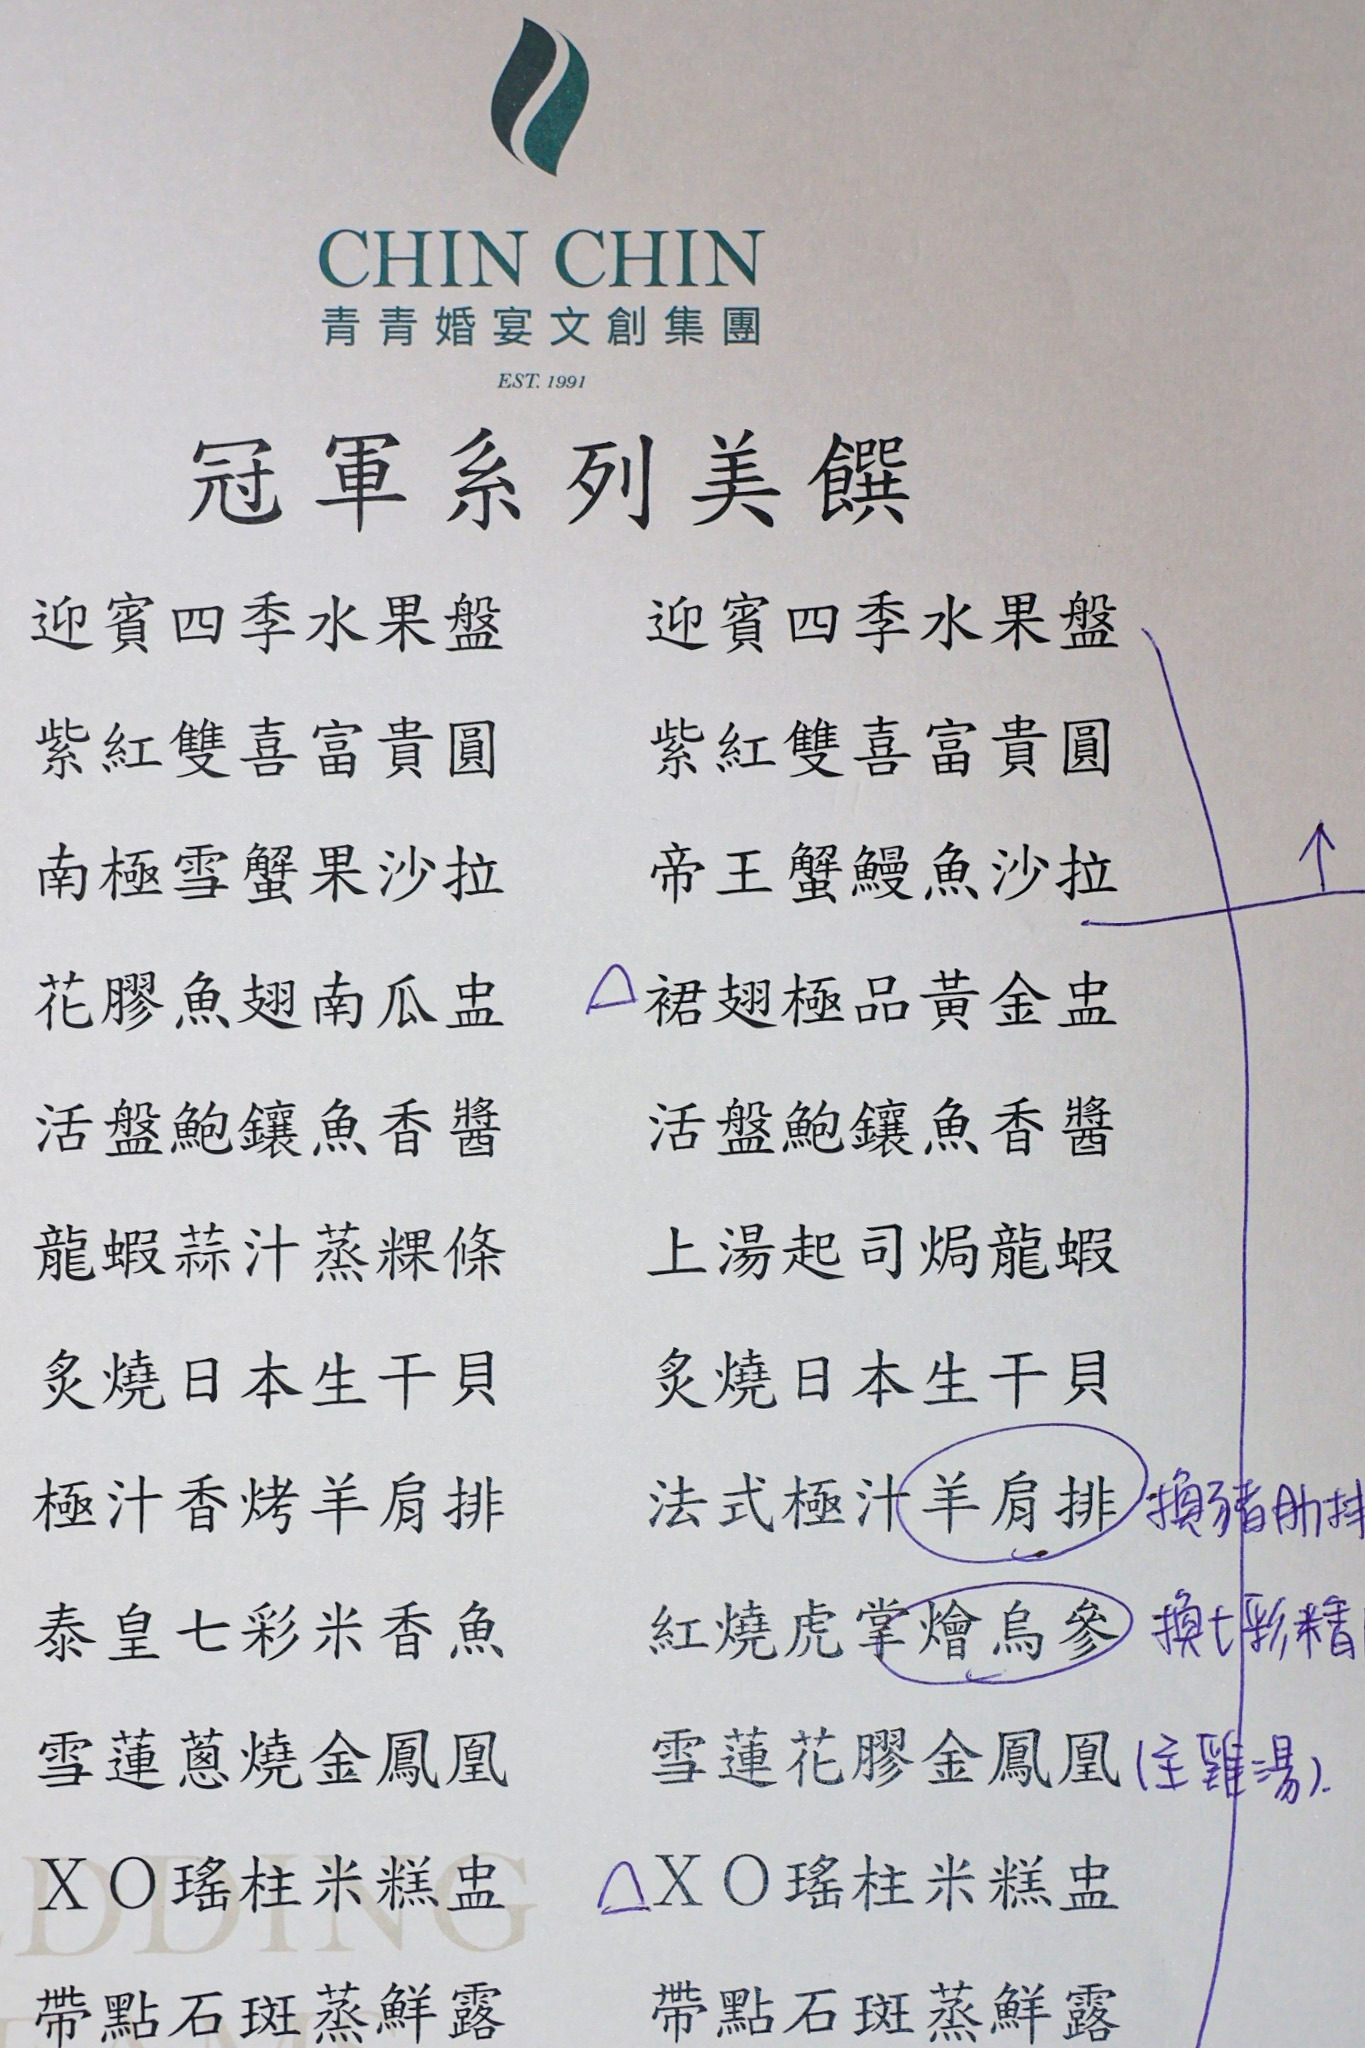 CHIN CHIN
青青婚宴文創集團
EST. 1991
冠軍系列美饌
迎賓四季水果盤
紫紅雙喜富貴圓
南極雪蟹果沙拉
花膠魚翅南瓜盅
活盤鮑鑲魚香醬
龍蝦蒜汁蒸粿條
炙燒日本生干貝
極汁香烤羊肩排
泰皇七彩米香魚
雪蓮蔥燒金鳳凰
XO瑤柱米糕盅
帶點石斑蒸鮮露
迎賓四季水果盤
紫紅雙喜富貴圓
帝王蟹鰻魚沙拉
裙翅極品黃金盅
活盤鮑鑲魚香醬
上湯起司焗龍蝦
炙燒日本生干貝
法式極汁羊肩排 換豬肋排
紅燒虎掌燴烏參 換七彩米香
雪蓮花膠金鳳凰 (全雞湯).
XO瑤柱米糕盅
帶點石斑蒸鮮露
EDDING